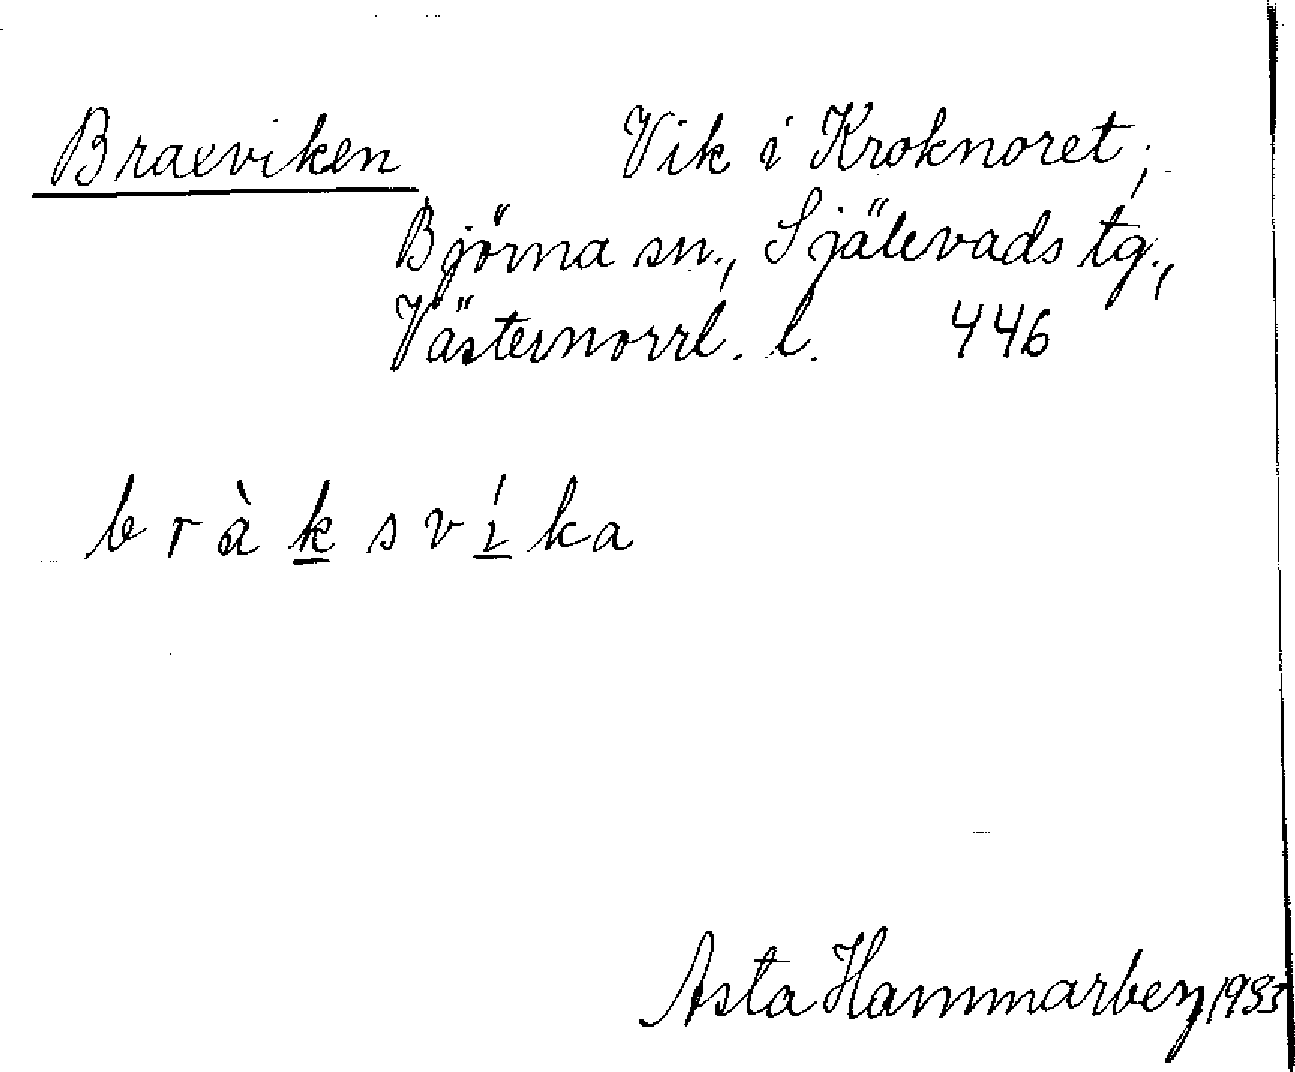 Braxviken Vik i Kroknoret;
Björna sn., Själevads tg.,
Västernorrl. l. 446
b r à k s v í k a
Asta Hammarberg